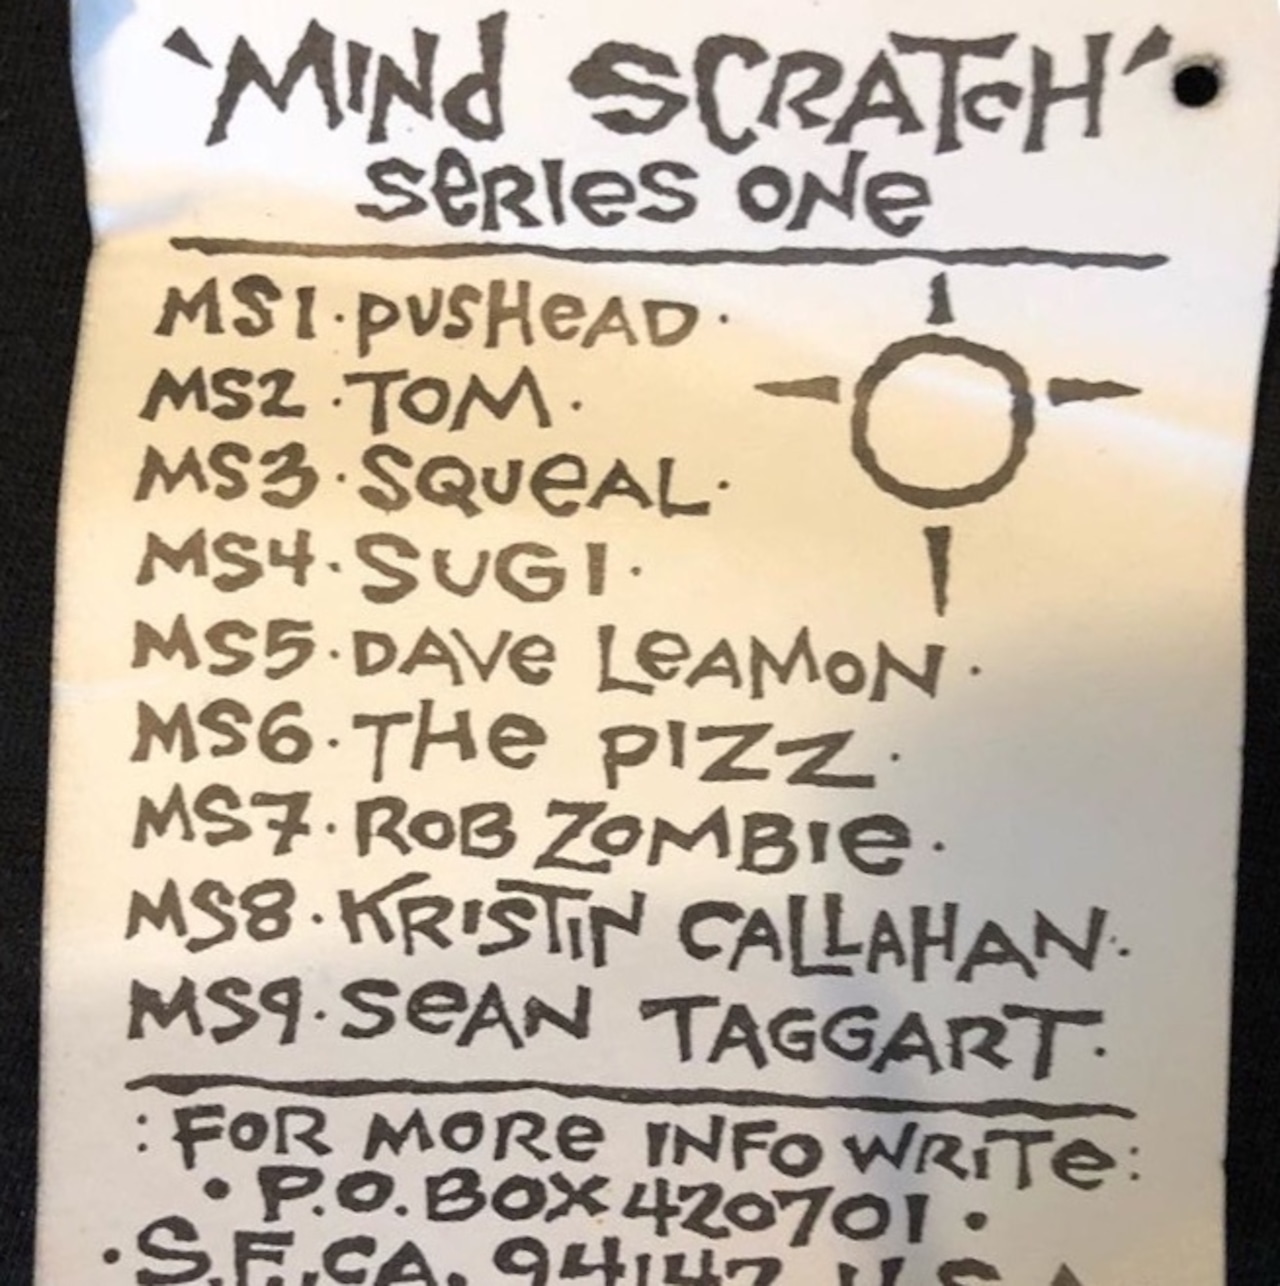 'MINd SCRATcH'
SeRIeS ONe
MS1·PUSHeAD·
MS2·TOM·
MS3·SQUeAL·
MS4·SUGI·
MS5·DAVe LeAMoN·
MS6·THe PIZZ·
MS7·RoB ZoMBIe·
MS8·KRISTiN CALLAHAN·
MS9·SeAN TAGGART·
:FoR MoRe INFo WRiTe:
•P.O.BOX 420701•
•S.F.,CA. 94147 U.S.A.